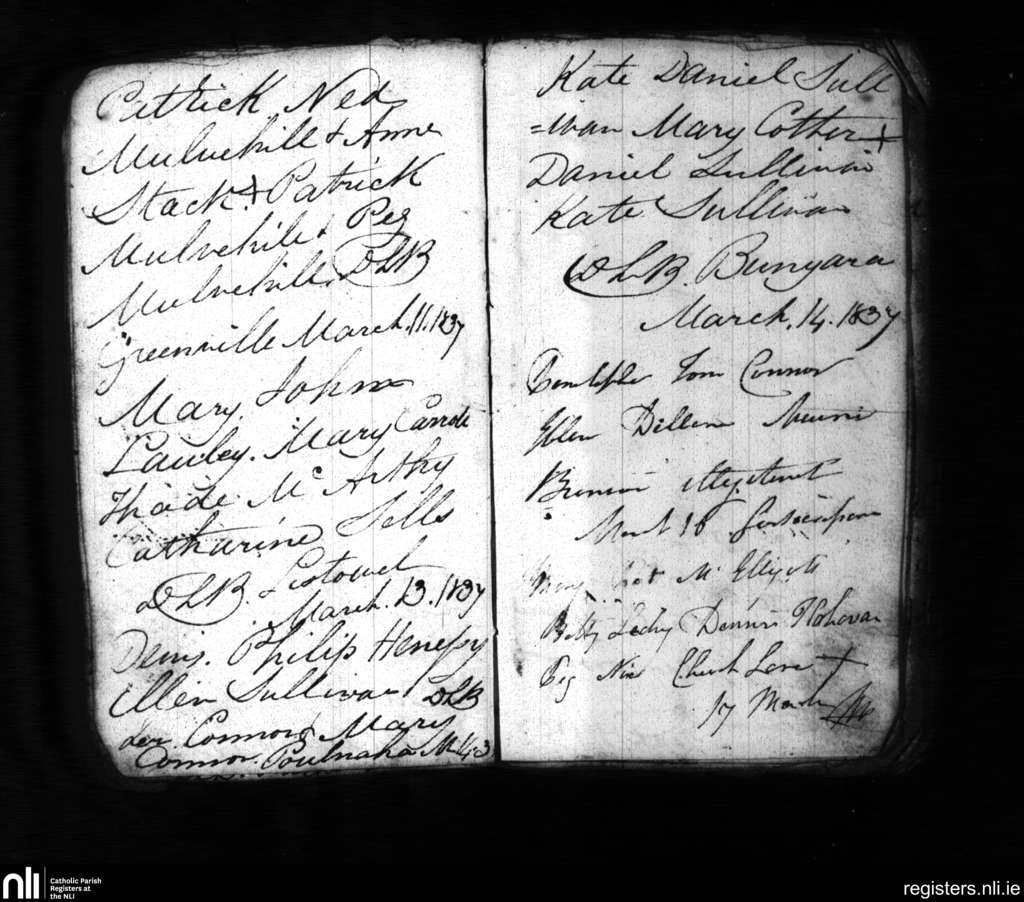 Patrick Ned
Mulvehill & Anne
Stack. & Patrick
Mulvehill & Peg
Mulvehill. DLB
Greenville March. 11. 1837
Mary. John
Lawley. Mary Carrole
Thade McArthy
Catharine Sells
DLB. Listowel
March. 13. 1837
Denis. Philip Henessy
Ellen Sullivan DLB
Connor & Mary
Connor. Poulnaha M 14. 3
Kate Daniel Sull
=ivan Mary Cotter &
Daniel Sullivan
Kate Sullivan
DLB. Bunyara
March. 14. 1837
Tom Connor
Ellen Dillon
March 16
McElligott
Betty Leahy Dennis
Peg Church Lane
17 March
nli
Catholic Parish
Registers at
the NLI
registers.nli.ie